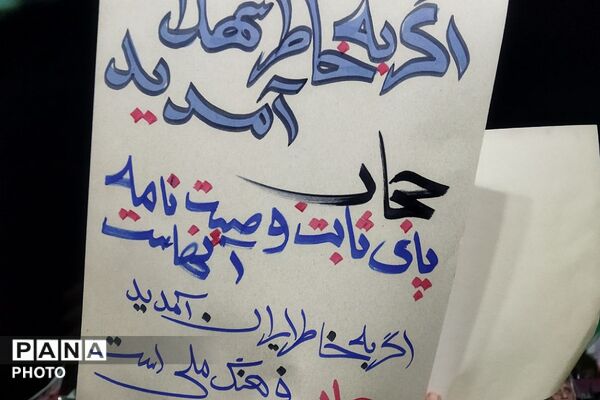 اگر به خاطر شهدا
آمدید
حجاب
پای ثابت وصیت نامه
آنهاست
اگر به خاطر ایران آمدید
فرهنگ ملی است
PANA
PHOTO